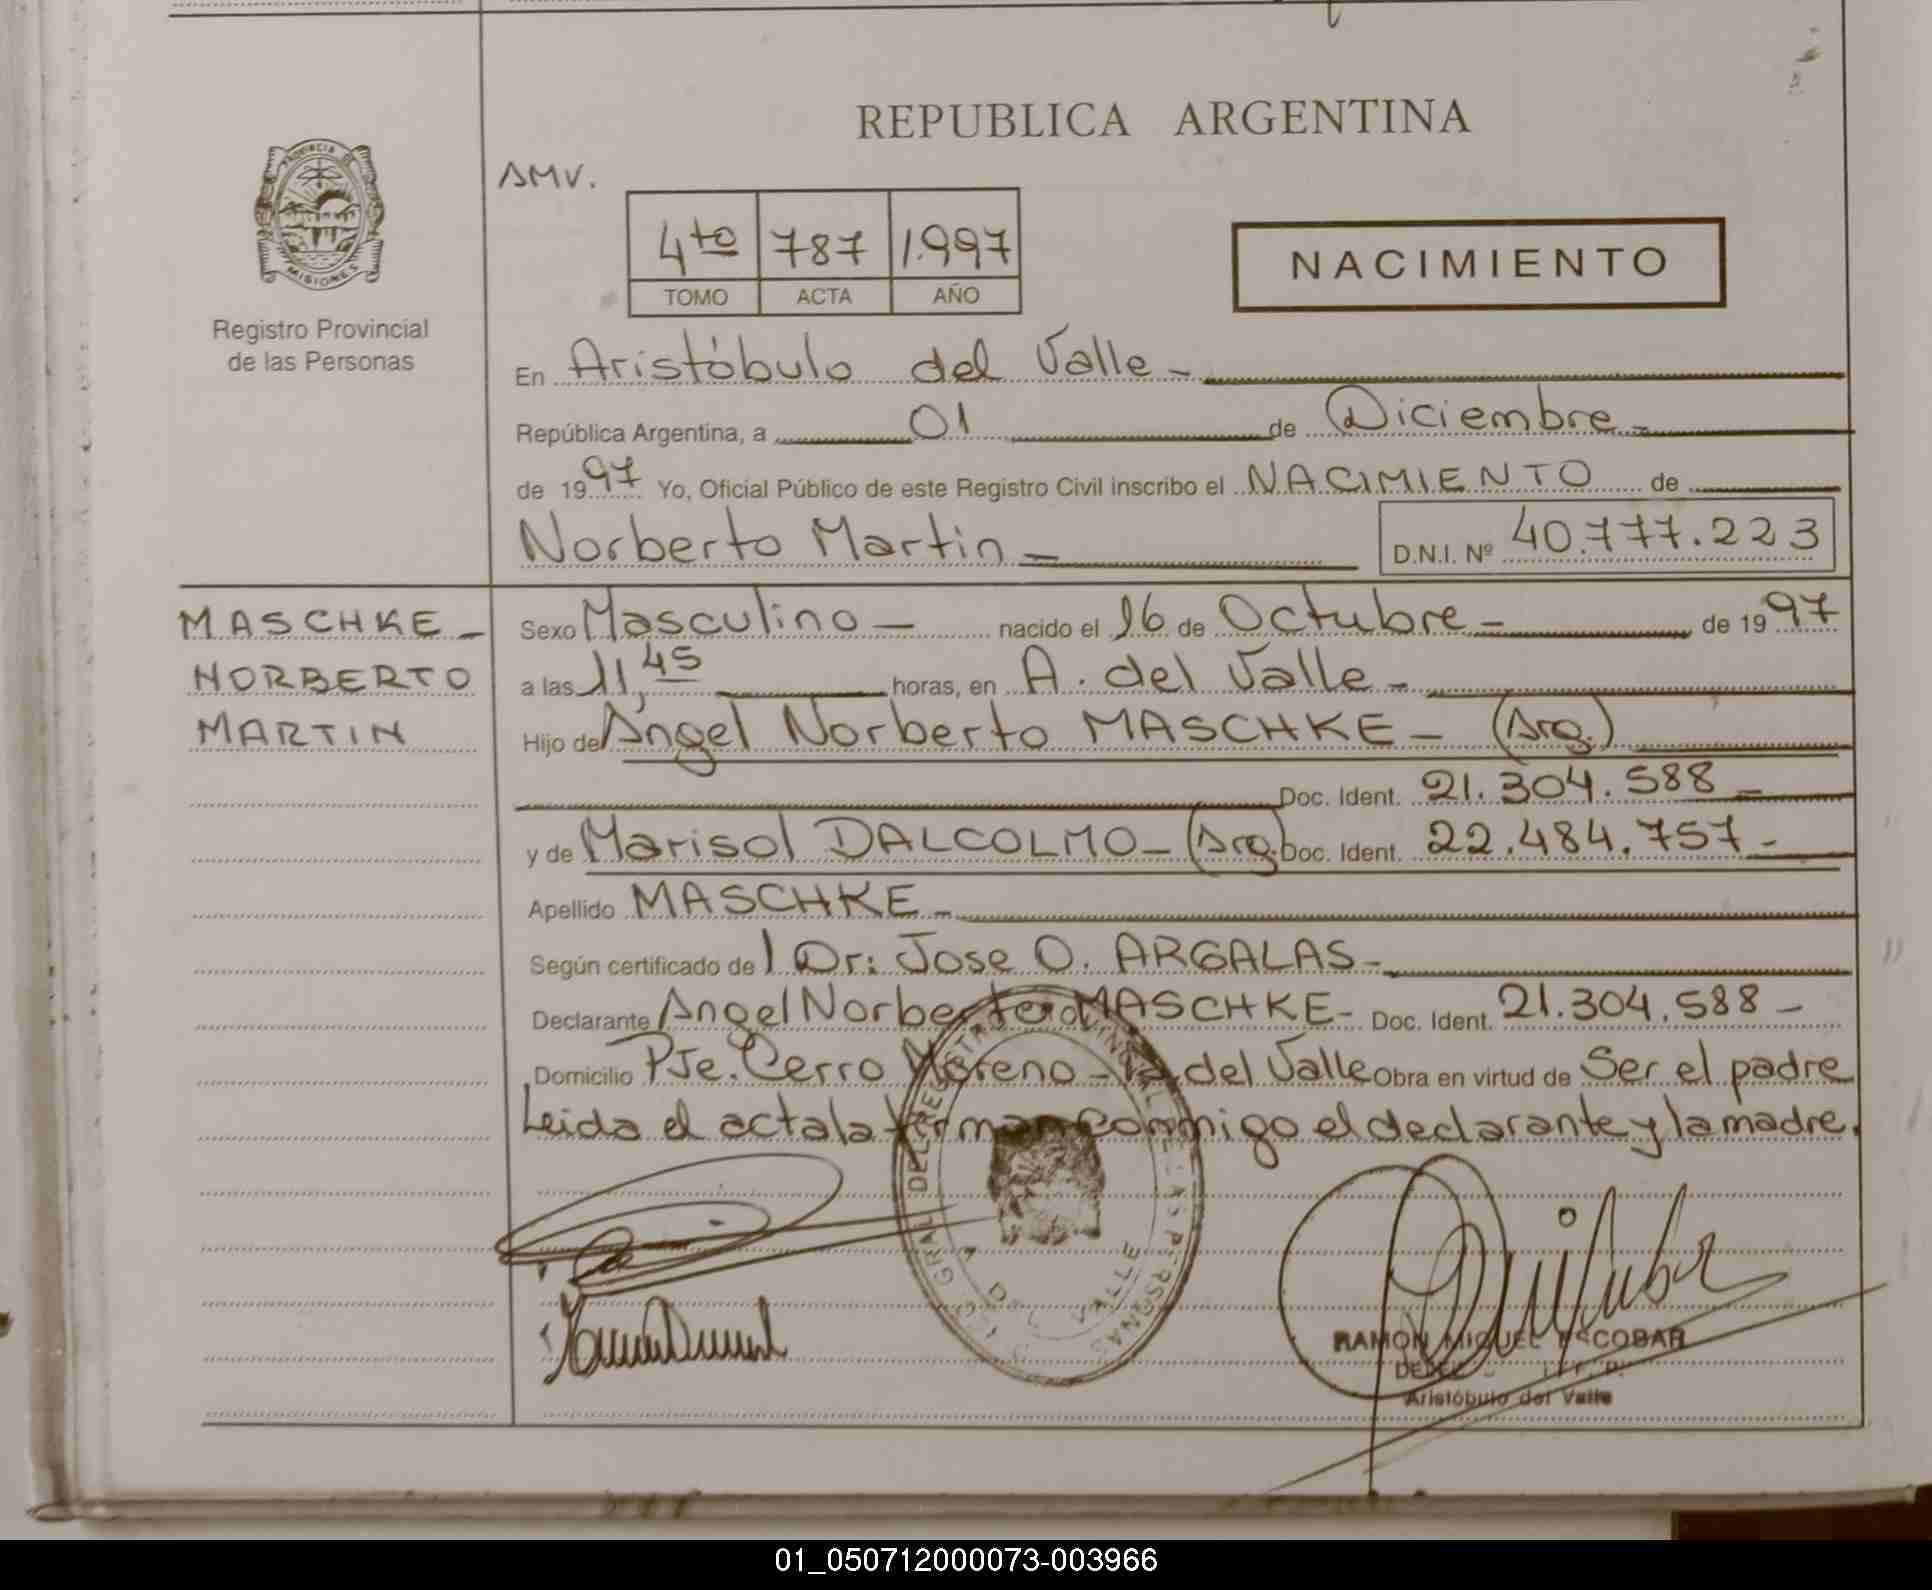 REPUBLICA ARGENTINA
PROVINCIA DE
MISIONES
Registro Provincial
de las Personas
AMV.
4to 787 1.997
TOMO ACTA AÑO
NACIMIENTO
En Aristóbulo del Valle -
República Argentina, a 01 de Diciembre -
de 1997 Yo, Oficial Público de este Registro Civil inscribo el NACIMIENTO de
Norberto Martin - D.N.I. Nº 40.777.223
MASCHKE -
NORBERTO
MARTIN
Sexo Masculino - nacido el 16 de Octubre - de 1997
a las 11,45 horas, en A. del Valle -
Hijo de Angel Norberto MASCHKE - (Arg.)
Doc. Ident. 21.304.588 -
y de Marisol DALCOLMO - (Arg.) Doc. Ident. 22.484.757 -
Apellido MASCHKE -
Según certificado de l Dr: Jose O. ARGALAS -
Declarante Angel Norberto MASCHKE - Doc. Ident. 21.304.588 -
Domicilio Pje. Cerro Moreno - A. del Valle Obra en virtud de Ser el padre
Leida el acta la firman conmigo el declarante y la madre.
RAMON MIGUEL ESCOBAR
Aristóbulo del Valle
01_050712000073-003966